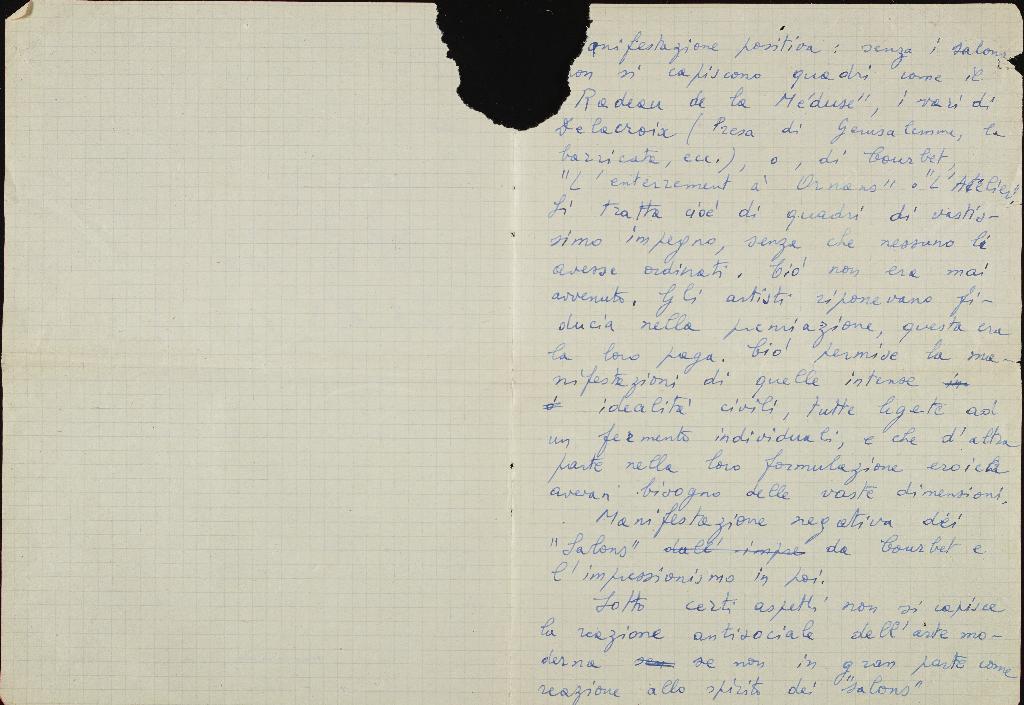 anifestazione positiva : senza i salons
non si capiscono quadri come il
Radeau de la Méduse", i vari di
Delacroix ( Presa di Gerusalemme, la
barricata, ecc.), o , di Courbet,
"L'enterrement à Ornans" o "L'Atelier".
Si tratta cioè di quadri di vastis-
simo impegno, senza che nessuno li
avesse ordinati. Ciò non era mai
avvenuto. Gli artisti riponevano fi-
ducia nella premiazione, questa era
la loro paga. Ciò permise la ma-
nifestazioni di quelle intense in
è idealità civili, tutte legate ad
un fermento individuali, e che d'altra
parte nella loro formulazione eroica
avevan bisogno delle vaste dimensioni.
Manifestazione negativa dei
"Salons" dall' impre da Courbet e
l'impressionismo in poi.
Sotto certi aspetti non si capisce
la reazione antisociale dell'arte mo-
derna sen se non in gran parte come
reazione allo spirito dei "salons"